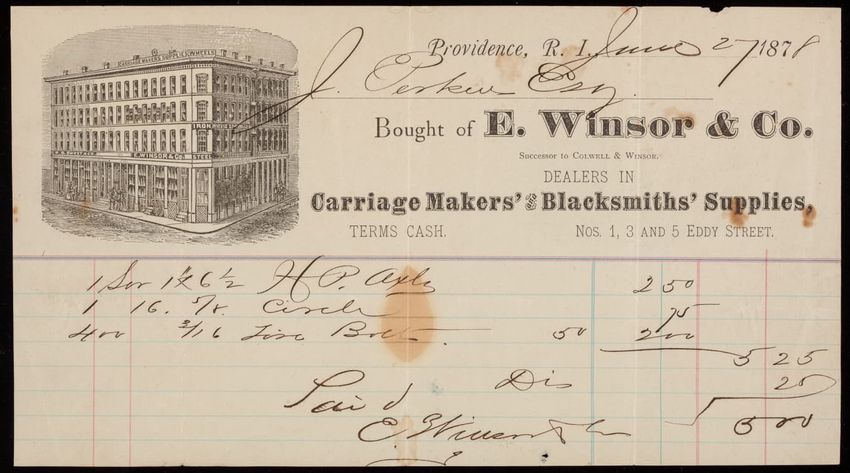 CARRIAGE MAKERS SUPPLIES, WHEELS
IRON
E. WINSOR & CO. STEEL
Providence, R. I. June 27 1878
J. Perkins Esq.
Bought of E. Winsor & Co.
Successor to Colwell & Winsor,
DEALERS IN
Carriage Makers' and Blacksmiths' Supplies,
TERMS CASH. Nos. 1, 3 and 5 Eddy Street.
1 6½ H P. Axle 2 50
1 16. 5/8 Circle 75
400 3/16 Tire Bolt 50 2 00
5 25
Dis 25
Paid 5 00
E Winsor & Co